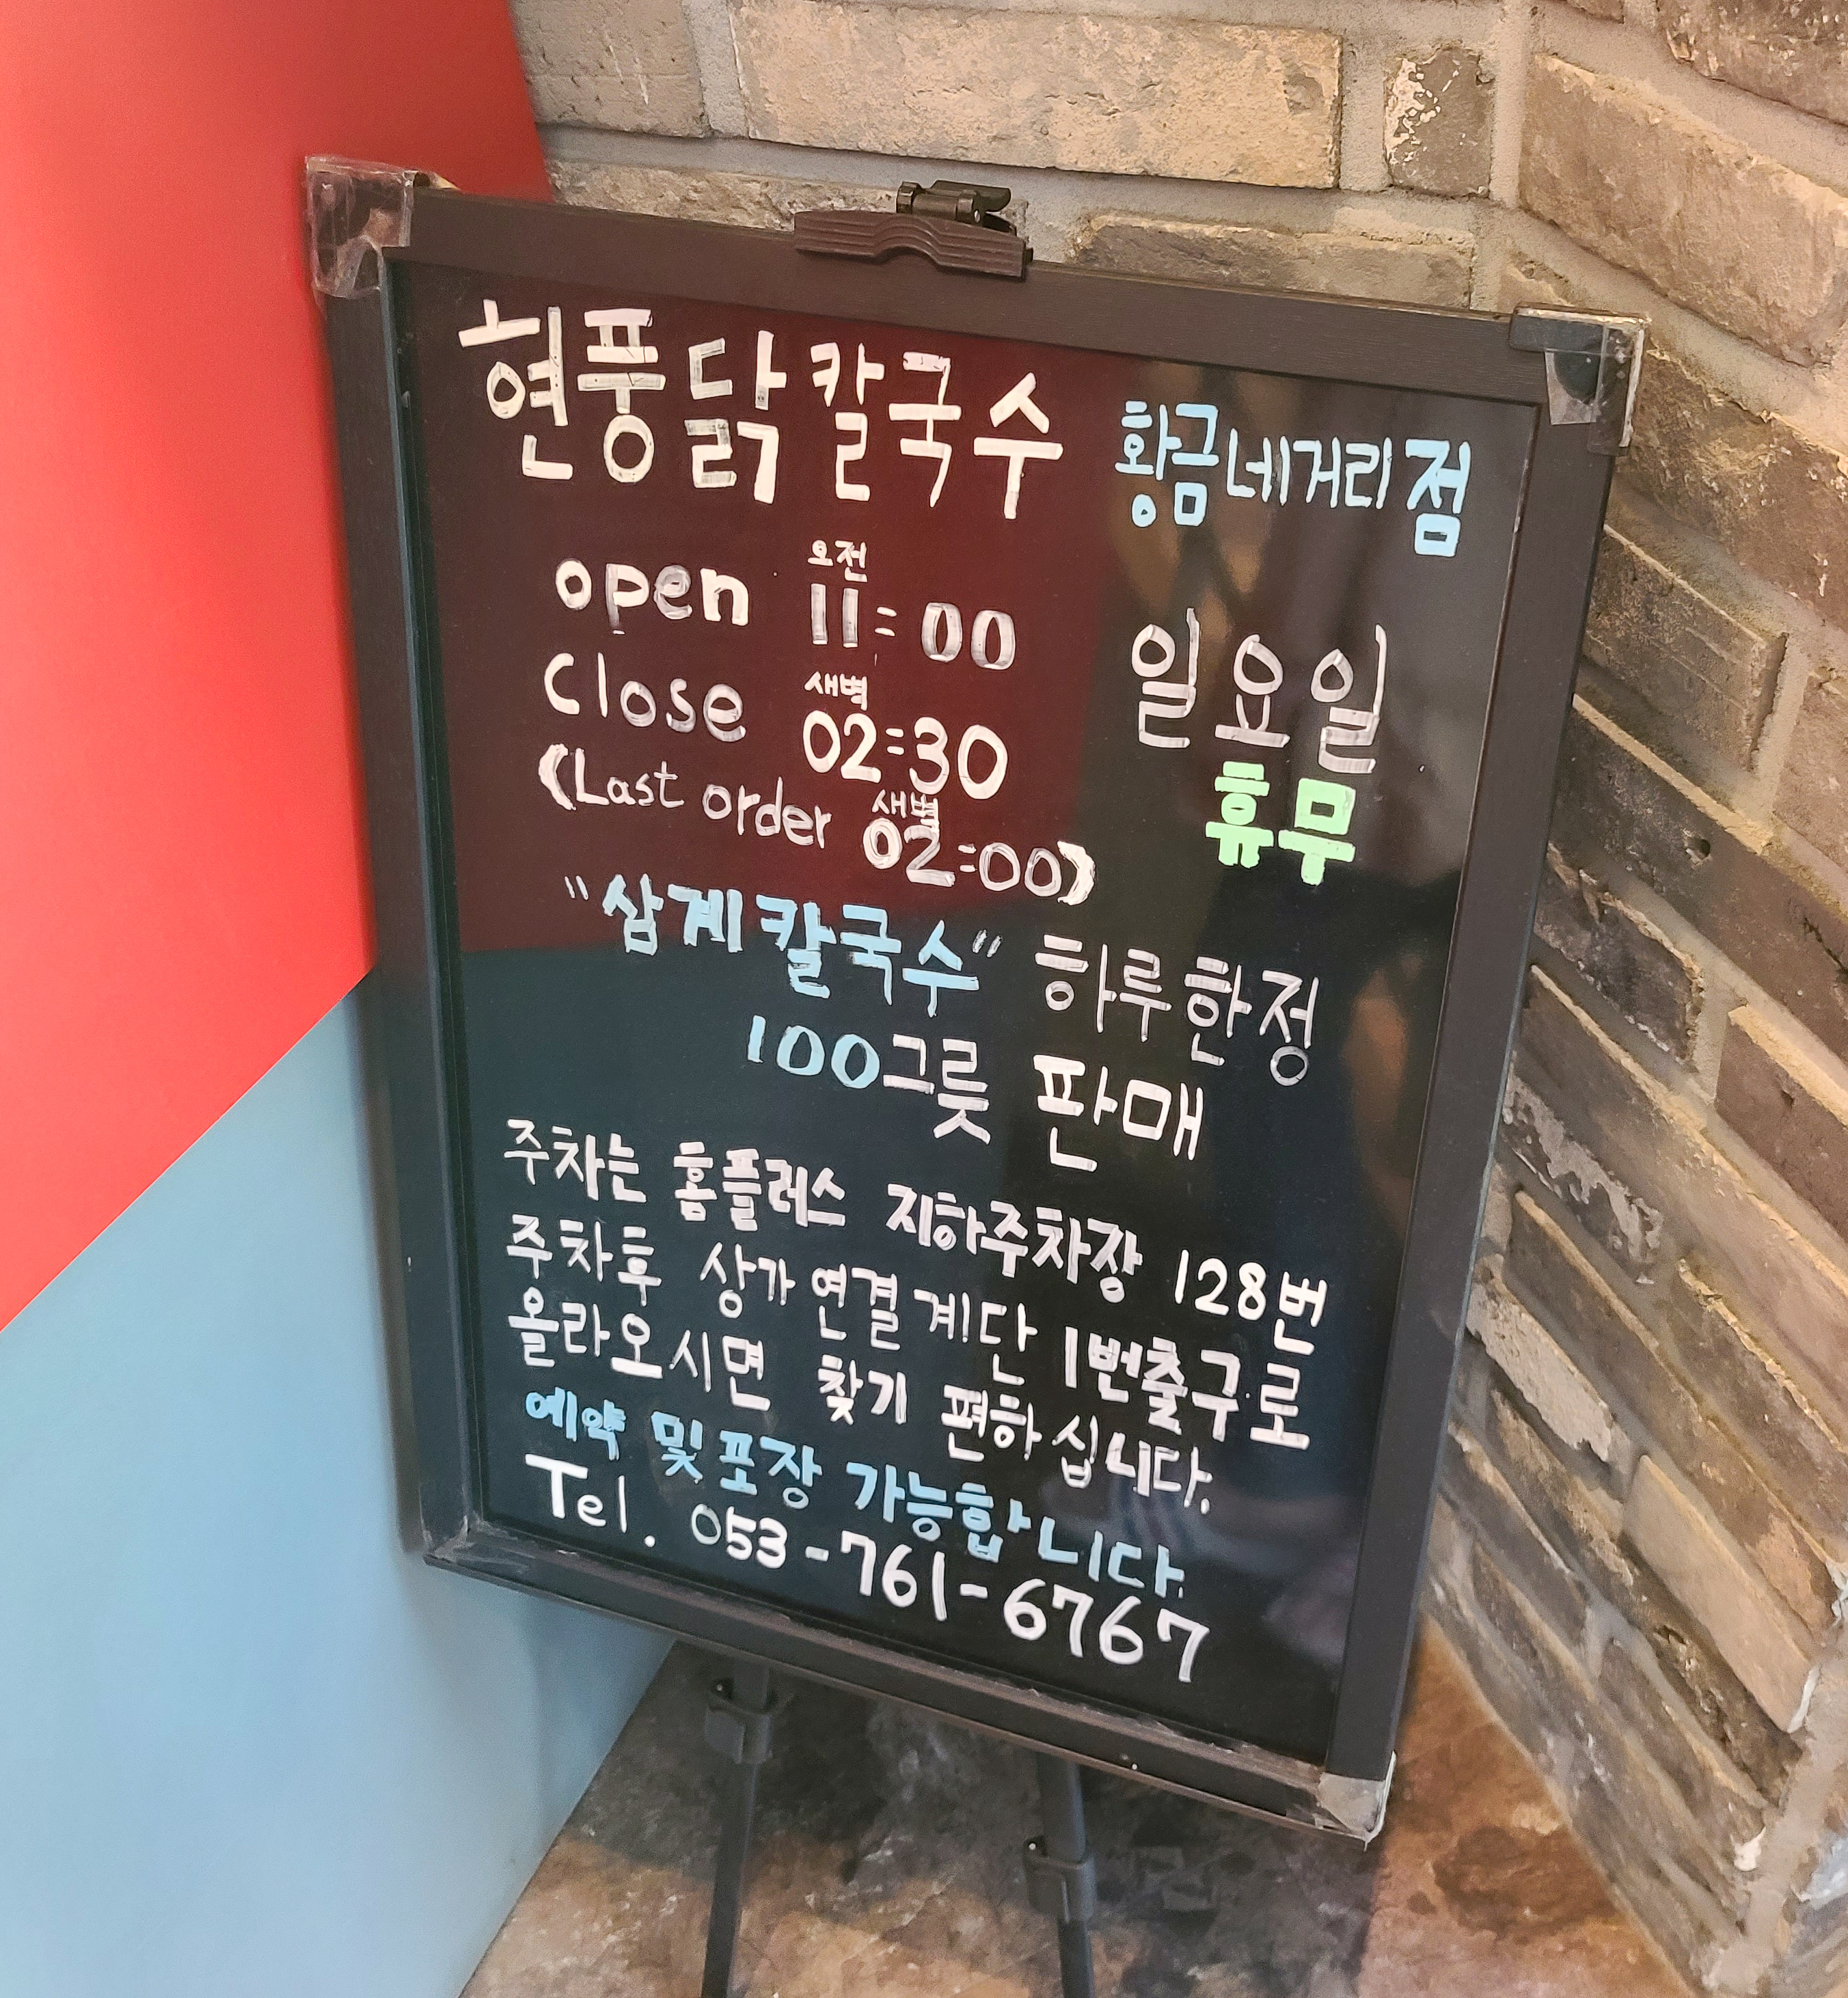 현풍닭칼국수 황금네거리점
open 오전 11:00
close 새벽 02:30
(Last order 새벽 02:00)
일요일
휴무
"삼계칼국수" 하루한정
100그릇 판매
주차는 홈플러스 지하주차장 128번
주차후 상가 연결계단 1번출구로
올라오시면 찾기 편하십니다.
예약 및 포장 가능합니다.
Tel. 053-761-6767